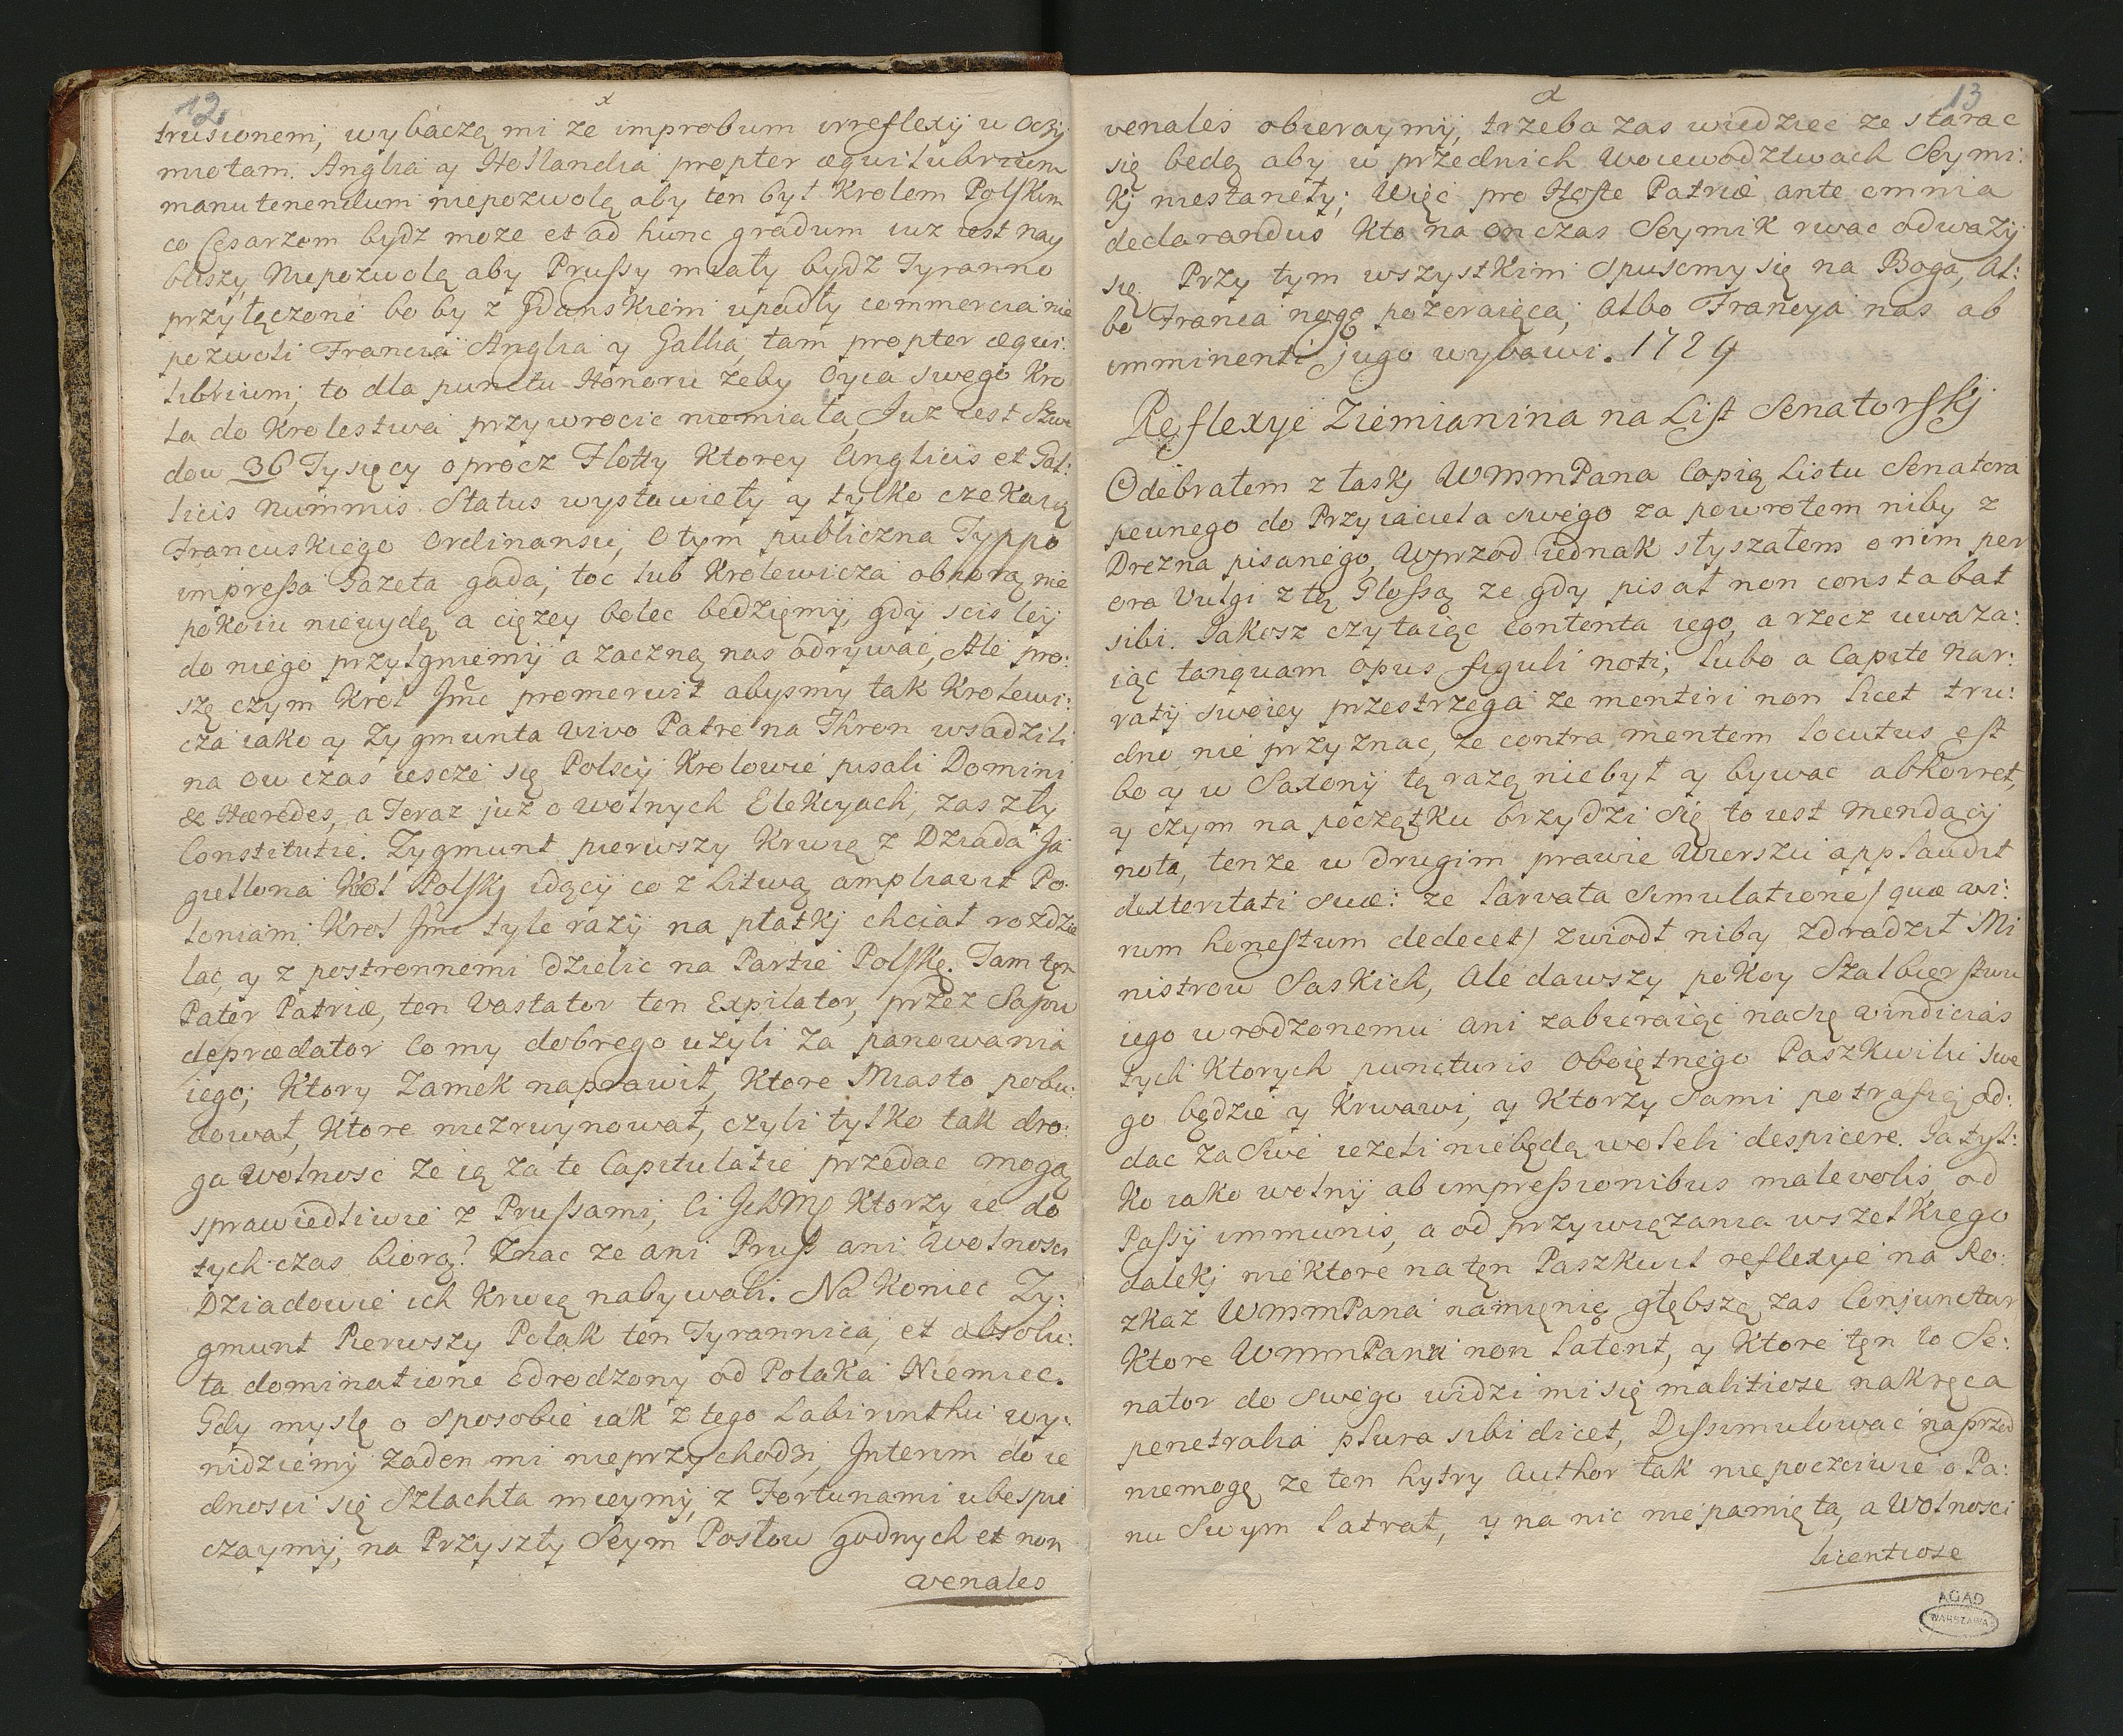 12
trusionem, wybaczą mi ze improbum irreflexij w Oczy
miotam. Anglia y Hollandia propter æquilubrium
manutenendum niepozwolą aby ten był Krolem Polskim
co Cesarzem bydz moze et ad hunc gradum iuz iest nay
bliszy, Niepozwolą aby Prussy miały bydz Tyranno
przyłączone bo by z Gdanskiem upadły commercia nie
pozwoli Francia Anglia y Gallia, tam propter æqui:
librium, to dla punctu Honoru zeby Oyca swego Kro
la do Krolestwa przywrocic niemiała, Juz iest Szwe
dow 36 Tysięcy oprocz Flotty Ktorey Anglicis et Gal:
licis Nummis Status wystawiely y tylko czekaią
Francuskiego Ordinansu, O tym publiczna Typpo
impressa Gazeta gada, toc lub Krolewicza obiorą nie
pokoiu niewydą a cięzey bolec będziemy, gdy scisley
do niego przylgniemij a zaczną nas odrywać, Ale pro:
szę czym Krol Jmc promeruit abysmy tak Krolewi:
cza iako y Zygmunta vivo Patre na Thron wsadzili
na ow czas iescze się Polscy Krolowie pisali Domini
& Hæredes, a Teraz już o wolnych Elekcyach, zaszły
Constitutie. Zygmunt pierwszy Krwią z Dziada Ja
giellona Krol Polsky idący co z Litwą ampliavit Po
loniam. Krol Jmc tyle razy na płatkj chciał rozdzie
lac, y z postronnemi dzielic na Partie Polskę. Tam ten
Pater Patriæ, ten Vastator ten Expilator, przez Sapiu
deprædator Co my dobrego użyli za panowania
iego; Ktory Zamek naprawił, Ktore Miasto pobu:
dował, Ktore niezruynował, czyli tylko tak dro:
ga Wolność ze ią za te Capitulatie przedac mogą
sprawiedliwie z Prussami, Ci Ichmć Ktorzy ie do
tych czas biorą? Znac ze ani Pruss ani Wolnosci
Dziadowie ich Krwią nabywali. Na Koniec Zy:
gmunt Pierwszy Polak ten Tyrannica, et absolu:
ta dominatione Odrodzony od Polaka Niemiec.
Gdy myslę o sposobie iak z tego Labirinthu wy:
nidziemy zaden mi nieprzychodzi, Interim do ie
dnosci się Szlachta mieymy, z Fortunami ubespie
czaymy, na Przyszły Seym Posłow godnych et non
venales
13
venales obieraymij, trzeba zas wiedziec ze starac
się będą aby w przednich Woiewodztwach Seymi:
kj niestanęły; Więc pro Hoste Patriæ ante omnia
declarandus Kto na on czas Seymik rwac odwazy
się. Przy tym wszystkim spuscmy się na Boga, Al:
bo Franca nogę pozeraięca, albo Francya nas ab
imminenti jugo wybawi. 1729
Reflexye Ziemianina na List Senatorskj
Odebrałem z łaskj WMmPana Copią Listu Senatora
pewnego do Przyiaciela swego za powrotem niby z
Drezna pisanego, Wprzod iednak słyszałem o nim per
ora Vulgi z tą Glossą ze gdy pisał non constabat
sibi. Jakosz czytaiąc Contenta iego, a rzecz uwaza:
iąc tanquam opus figuli noti, lubo a Capite nar:
ratij swoiey przestrzega ze mentiri non licet tru:
dno nie przyznac, ze contra mentem locutus est
bo y w Saxony tą razą niebył y bywac abhorret,
y czym na początku brzydzi się to iest mendacij
nota, tenze w drugim prawie Wierszu applaudit
dexteritati suæ: ze larvata simulatione/ quæ vi:
rum honestum dedecet/ zwiodł niby zdradził Mi
nistrow Saskich, Ale dawszy pokoy Szalbierstwu
iego wrodzonemu ani zabieraiąc na się vindicias
tych Ktorych puncturis oboiętnego Paszkwilu swe
go będzie y Krwawi, y Ktorzy sami potrafią od:
dac za swe iezeli niebędą woleli despicere. Ja tyl:
ko iako wolny ab impressionibus malevolis od
Passij immunis, a od przywiązania wszelkiego
dalekj niektore na ten Paszkwil reflexye na Ro:
zkaz WMmPana namienię głębszę zas Conjunctur
Ktore WmmPana non latent, y Ktore ten to Se:
nator do swego widzi mi się malitiose nakręca
penetralia plura sibi dicet, Dissimulować naprzod
niemogę ze ten hytry Author tak niepoczciwie o Pa:
nu Swym latrat, y na nic niepamięta, a Wolnosci
licentiose
AGAD
WARSZAWA